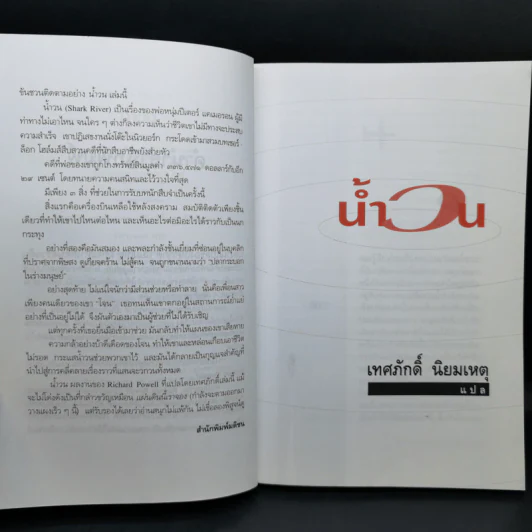 ชันชวนติดตามอย่าง น้ำวน เล่มนี้
น้ำวน (Shark River) เป็นเรื่องของพ่อหนุ่มปีเตอร์ แคเมอรอน ผู้มี
ท่าทางไม่เอาไหน จนใคร ๆ ต่างก็ลงความเห็นว่าชีวิตเขาไม่มีทางจะประสบ
ความสำเร็จ เขาปฏิเสธงานนั่งโต๊ะในนิวยอร์ก กระโดดเข้ามาสวมบทเชอร์-
ล็อก โฮล์มส์สืบสวนคดีที่นักสืบอาชีพยังส่ายหัว
คดีที่พ่อของเขาถูกโกงทรัพย์สินมูลค่า ดอลลาร์กับอีก
๒๙ เซนต์ โดยทนายความคนสนิทและไว้วางใจที่สุด
มีเพียง ๓ สิ่ง ที่ช่วยในการรับบทนักสืบจำเป็นครั้งนี้
สิ่งแรกคือเครื่องบินเหลือใช้หลังสงคราม สมบัติติดตัวเพียงชิ้น
เดียวที่ทำให้เขาไปไหนต่อไหน และเห็นอะไรต่อมิอะไรได้ราวกับเป็นนก
กระทุง
อย่างที่สองคือมันสมอง และพละกำลังชั้นเยี่ยมที่ซ่อนอยู่ในบุคลิก
ที่ปราศจากพิษสง ดูเกียจคร้าน ไม่สู้คน จนถูกขนานนามว่า "ปลากระบอก
ในร่างมนุษย์"
อย่างสุดท้าย ไม่แน่ใจนักว่ามีส่วนช่วยหรือทำลาย นั่นคือเพื่อนสาว
เพียงคนเดียวของเขา "โจน" เธอทนเห็นเขาตกอยู่ในสถานการณ์ย่ำแย่
อย่างที่เป็นอยู่ไม่ได้ จึงผันตัวเองมาเป็นผู้ช่วยที่ไม่ได้รับเชิญ
แต่ทุกครั้งที่เธอยื่นมือเข้ามาช่วย มันกลับทำให้แผนของเขาเสียหาย
ความกล้าอย่างบ้าดีเดือดของโจน ทำให้เขาและหล่อนเกือบเอาชีวิต
ไม่รอด กระแสน้ำวนช่วยพวกเขาไว้ และมันได้กลายเป็นกุญแจสำคัญที่
นำไปสู่การคลี่คลายเรื่องราวที่แสนจะวกวนทั้งหมด
น้ำวน ผลงานของ Richard Powell ที่แปลโดยเทศภักดิ์เล่มนี้ แม้
จะไม่โด่งดังเป็นที่กล่าวขวัญเหมือน
วางแผงเร็ว ๆ นี้) แต่รับรองได้เลยว่าอ่านสนุกไม่แพ้กัน ไม่เชื่อลองพิสูจน์ดู
สำนักพิมพ์มติชน
น้ำวน
เทศภักดิ์ นิยมเหตุ
แปล